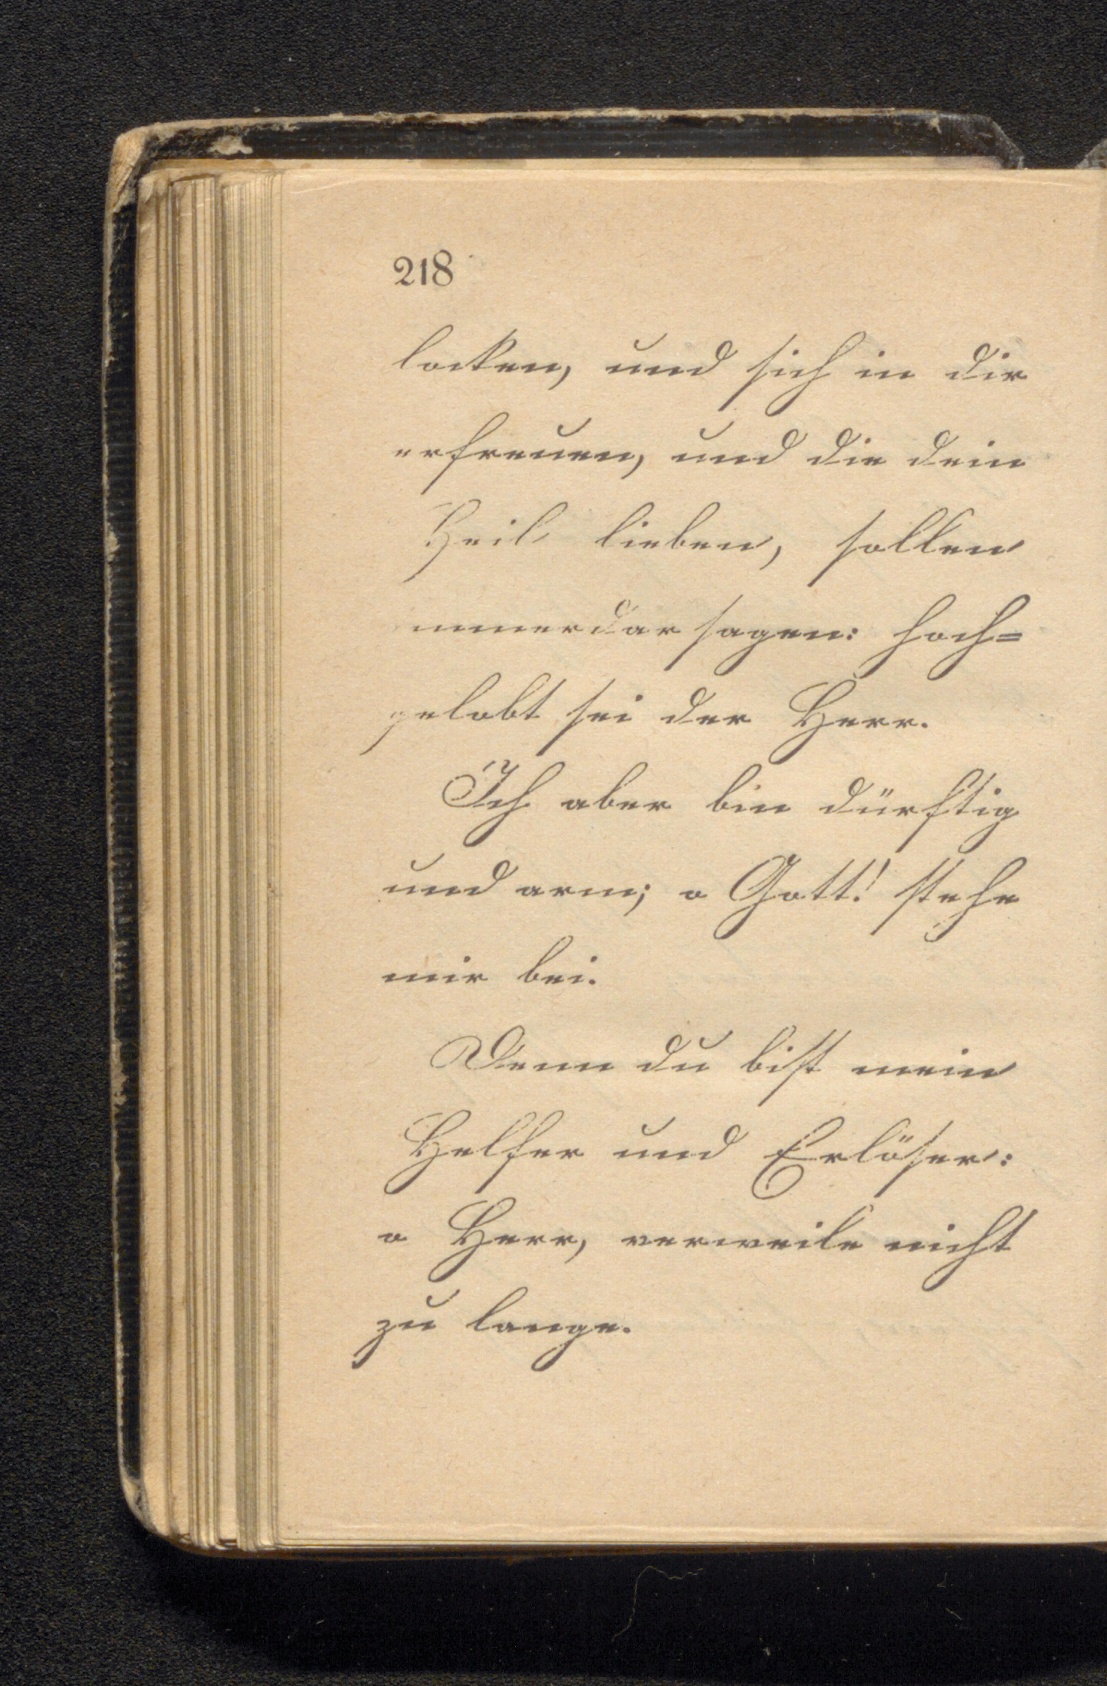 218
locken, und sich in dir
erfreuen, und die dein
Heil lieben, sollen
immerdar sagen: hoch=
gelobt sei der Herr.
Ich aber bin dürftig
und arm; o Gott! stehe
mir bei.
Denn du bist mein
Helfer und Erlöser:
o Herr, verweile nicht
zu lange.